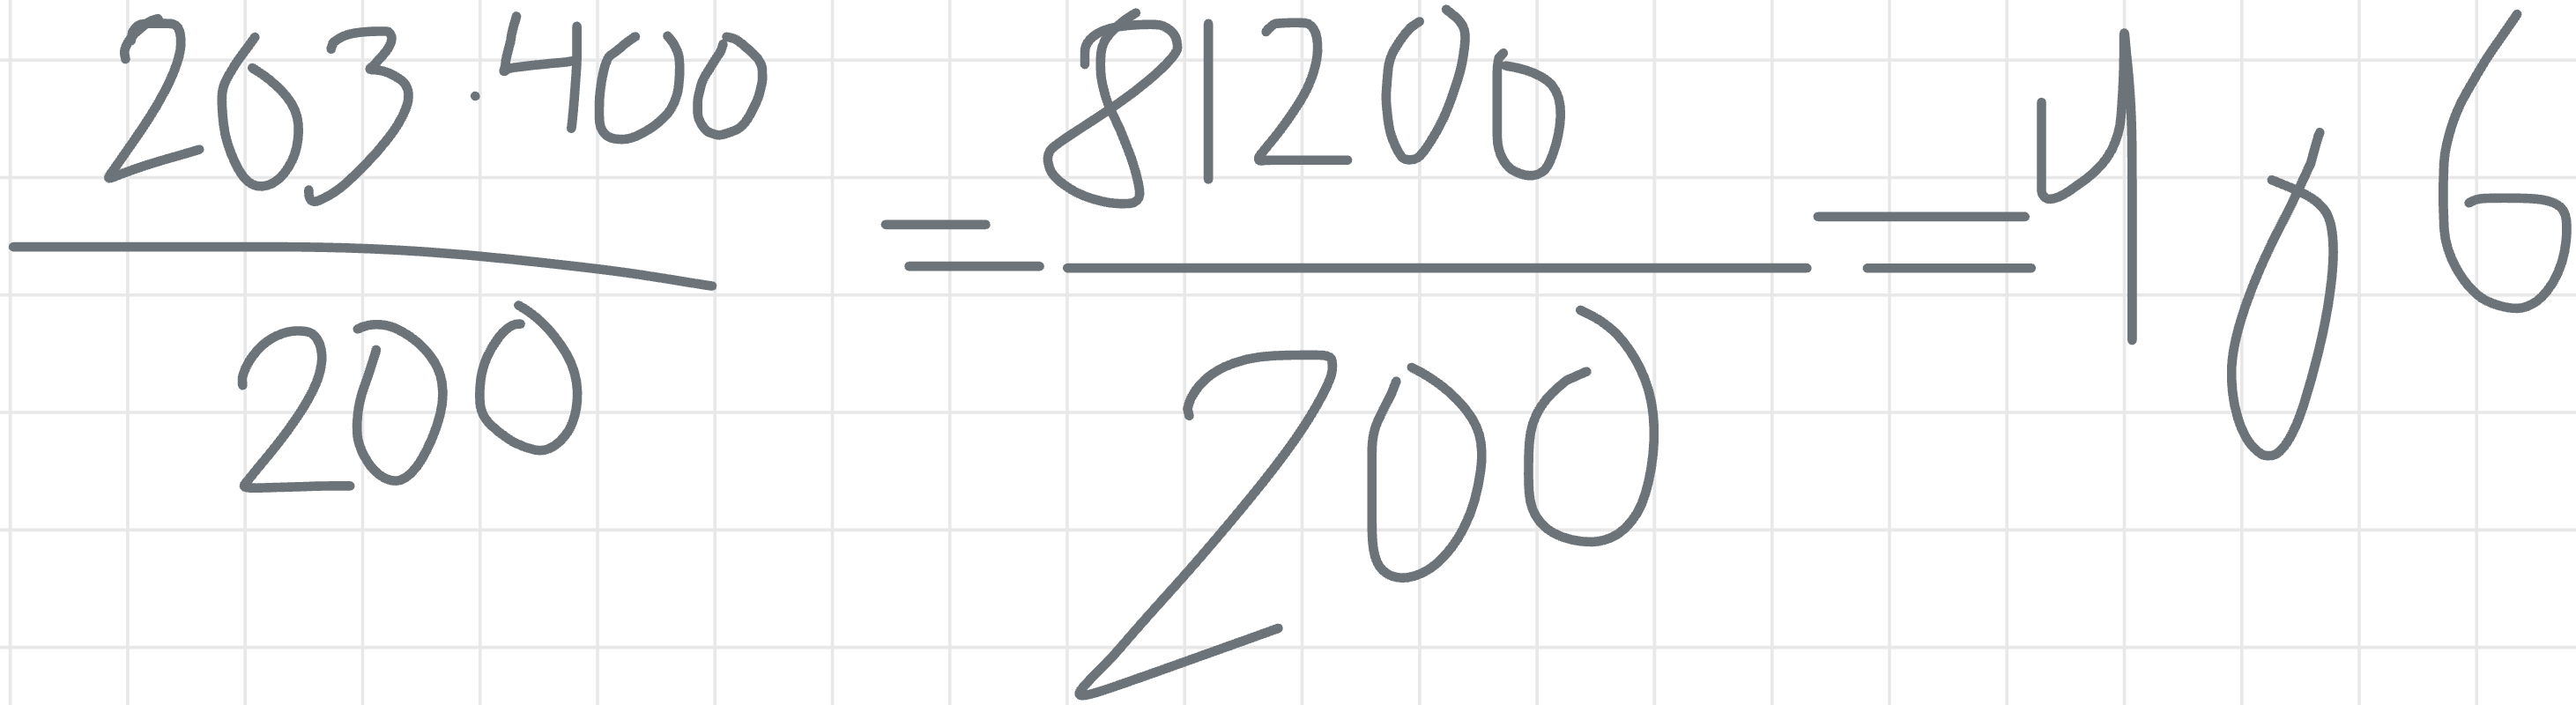 203·400 / 200 = 81200 / 200 = 406